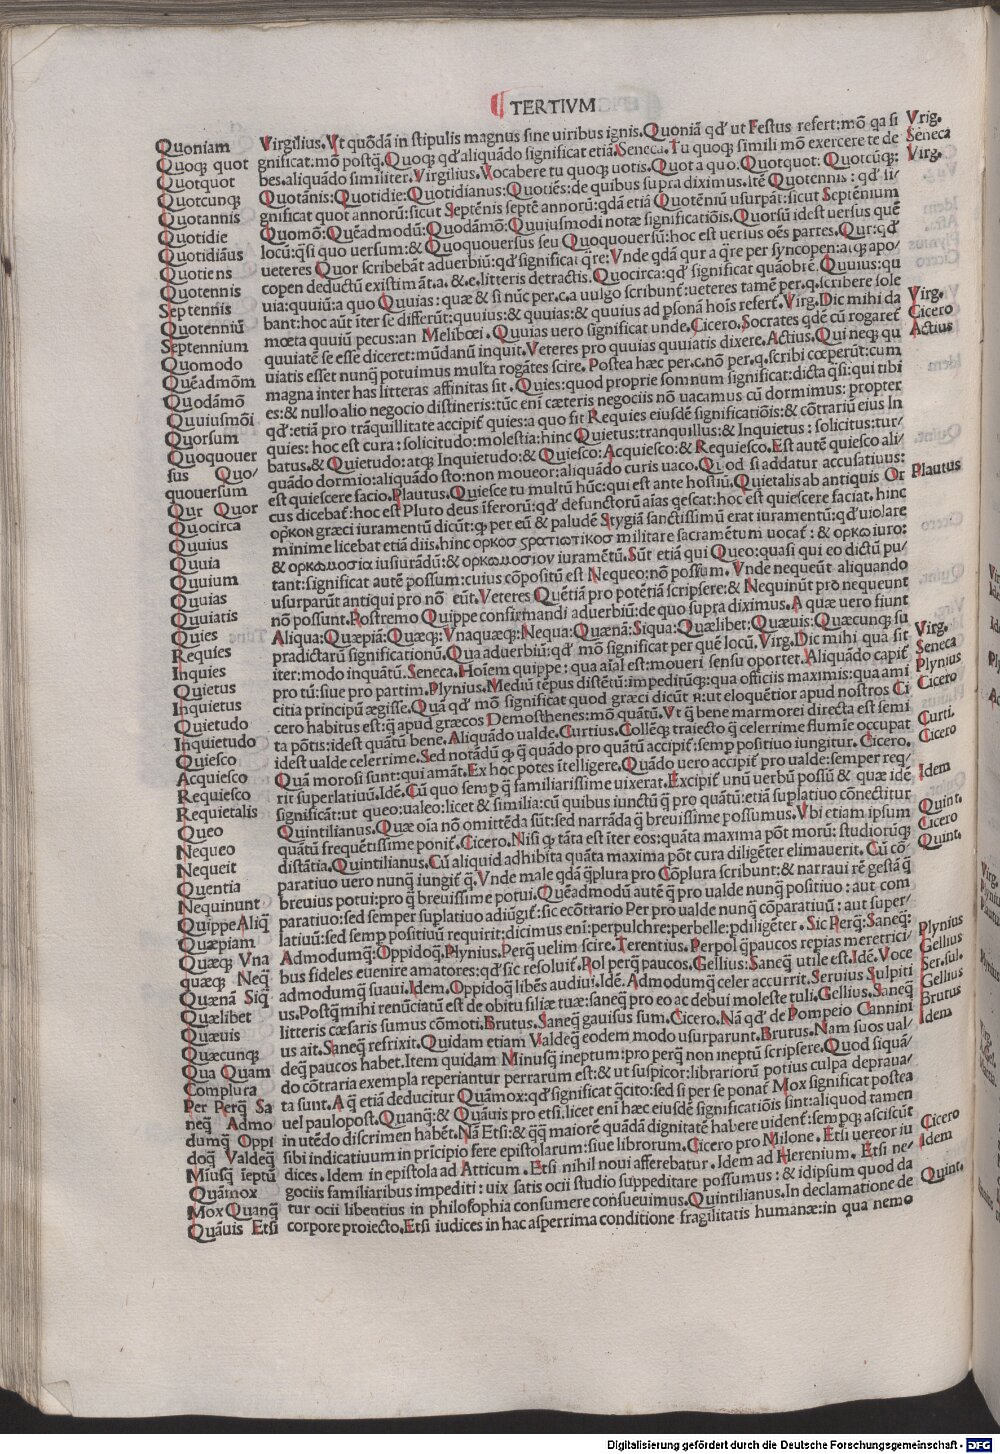 TERTIVM
Quoniam
Quoq; quot
Quotquot
Quotcunq;
Quotannis
Quotidie
Quotidiãus
Quotiens
Quotennis
Septenñis
Quotenniũ
Septennium
Quomodo
Quẽadmõm
Quodãmõ
Quuiusmõi
Quorsum
Quoquouer
sus Quo/
quouersum
Qur Quor
Quocirca
Quuius
Quuia
Quuium
Quuias
Quuiatis
Quies
Requies
Inquies
Quietus
Inquietus
Quietudo
Inquietudo
Quiesco
Acquiesco
Requiesco
Requietalis
Queo
Nequeo
Nequeit
Quentia
Nequinunt
Quippe Aliq̃
Quæpiam
Quæq; Vna
quæq; Neq̃
Quænã Siq̃
Quælibet
Quæuis
Quæcunq;
Qua Quam
Complura
Per Perq̃ Sa
neq̃ Admo
dumq̃ Oppi
doq̃ Valdeq̃
Miusq̃ ĩeptũ
Quãmox
Mox Quanq̃
Quãuis Etsi
Virgilius. Vt quõdã in stipulis magnus sine uiribus ignis. Quoniã qd' ut Festus refert: mõ qa si
gnificat: mõ postq̃. Quoq; qd' aliquãdo significat etiã. Seneca. Tu quoq; simili mõ exercere te de
bes. aliquãdo similiter. Virgilius. Vocabere tu quoq; uotis. Quot a quo. Quotquot: Quotcũq;:
Quotãnis: Quotidie: Quotidianus: Quotiẽs: de quibus supra diximus. itẽ Quotennis: qd' si/
gnificat quot annorũ: sicut Septẽnis septẽ annorũ: qdã etiã Quotẽniũ usurpãt: sicut Septẽnium
Quomõ: Quẽadmodũ: Quodãmõ: Quuiusmodi notæ significatiõis. Quorsũ idest uersus quẽ
locũ: q̃si quo uersum: & Quoquouersus seu Quoquouersũ: hoc est uerius oẽs partes. Qur: qd'
ueteres Quor scribebãt aduerbiũ: qd' significat q̃re: Vnde qdã qur a q̃re per syncopen: atq; apo/
copen deductũ existimãt. a. &. e. litteris detractis. Quocirca: qd' significat quãobrẽ. Quuius: qu
uia: quuiũ: a quo Quuias: quæ & si nũc per. c. a uulgo scribunt̃: ueteres tamẽ per. q. scribere sole
bant: hoc aũt iter se differũt: quuius: & quuias: & quuius ad psonã hoĩs refert̃. Virg. Dic mihi da
mœta quuiũ pecus: an Melibœi. Quuias uero significat unde. Cicero. Socrates qdẽ cũ rogaret̃
quuiatẽ se esse diceret: mũdanũ inquit. Veteres pro quuias quuiatis dixere. Actius. Qui neq; qu
uiatis esset nunq̃ potuimus multa rogãtes scire. Postea hæc per. c. nõ per. q. scribi cœperũt: cum
magna inter has litteras affinitas sit. Quies: quod proprie somnum significat: dicta q̃si: qui tibi
es: & nullo alio negocio distineris: tũc eni cæteris negociis nõ uacamus cũ dormimus: propter
qd': etiã pro trãquillitate accipit̃ quies: a quo fit Requies eiusdẽ significatiõis: & cõtrariũ eius In
quies: hoc est cura: solicitudo: molestia: hinc Quietus: tranquillus: & Inquietus: solicitus: tur/
batus. & Quietudo: atq; Inquietudo: & Quiesco: Acquiesco: & Requiesco. Est autẽ quiesco ali/
quãdo dormio: aliquãdo sto: non moueor: aliquãdo curis uaco. Quod si addatur accusatiuus:
est quiescere facio. Plautus. Quiesce tu multũ hũc: qui est ante hostiũ. Quietalis ab antiquis Or
cus dicebat̃: hoc est Pluto deus ĩferorũ: qd' defunctorũ aĩas gescat: hoc est quiescere faciat. hinc
ορκον græci iuramentũ dicũt: qp per eũ & paludẽ Stygiã sanctissimũ erat iuramentũ: qd' uiolare
minime licebat etiã diis. hinc ορκος ςρατιωτικος militare sacramẽtum uocat̃: & ορκω iuro:
& ορκωμοσια iusiurãdũ: & ορκωμοσιον iuramẽtũ. Sũt etiã qui Queo: quasi qui eo dictũ pu/
tant: significat autẽ possum: cuius cõpositũ est Nequeo: nõ possum. Vnde nequeũt aliquando
usurparũt antiqui pro nõ eũt. Veteres Quẽtiã pro potẽtiã scripsere: & Nequinũt pro nequeunt
nõ possunt. Postremo Quippe confirmandi aduerbiũ: de quo supra diximus. A quæ uero fiunt
Aliqua: Quæpiã: Quæq;: Vnaquæq;: Nequa: Quænã: Siqua: Quælibet: Quæuis: Quæcunq; su
pradictarũ significationũ. Qua aduerbiũ: qd' mõ significat per quẽ locũ. Virg. Dic mihi qua sit
iter: modo inquãtũ. Seneca. Hoĩem quippe: qua aĩal est: moueri sensu oportet. Aliquãdo capit̃
pro tũ: siue pro partim. Plynius. Mediũ tẽpus distẽtũ: impeditũq;: qua officiis maximis: qua ami
citia principũ ægisse. Quã qd' mõ significat quod græci dicũt η: ut eloquẽtior apud nostros Ci
cero habitus est: q̃ apud græcos Demosthenes: mõ quãtũ. Vt q̃ bene marmorei directa est semi
ta põtis: idest quãtũ bene. Aliquãdo ualde. Curtius. Collẽq; traiecto q̃ celerrime flumĩe occupat
idest ualde celerrime. Sed notãdũ qp q̃ quãdo pro quãtũ accipit̃: semp positiuo iungitur. Cicero.
Quã morosi sunt: qui amãt. Ex hoc potes ĩtelligere. Quãdo uero accipit̃ pro ualde: semper req/
rit superlatiuũ. Idẽ. Cũ quo semp q̃ familiarissime uixerat. Excipit̃ unũ uerbũ possũ & quæ idẽ
significãt: ut queo: ualeo: licet & similia: cũ quibus iunctũ q̃ pro quãtũ: etiã suplatiuo cõnectitur
Quintilianus. Quæ oĩa nõ omittẽda sũt: sed narrãda q̃ breuissime possumus. Vbi etiam ipsum
quãtũ frequẽtissime ponit̃. Cicero. Nisi qp tãta est ĩter eos: quãta maxima põt morũ: studiorũq;
distãtia. Quintilianus. Cũ aliquid adhibita quãta maxima põt cura diligẽter elimauerit. Cũ cõ
paratiuo uero nunq̃ iungit̃ q̃. Vnde male qdã q̃plura pro Cõplura scribunt: & narraui rẽ gestã q̃
breuius potui: pro q̃ breuissime potui. Quẽadmodũ autẽ q̃ pro ualde nunq̃ positiuo: aut com
paratiuo: sed semper suplatiuo adiũgit̃: sic ecõtrario Per pro ualde nunq̃ cõparatiuũ: aut super/
latiuũ: sed semp positiuũ requirit: dicimus eni: perpulchre: perbelle: pdiligẽter. Sic Perq̃: Saneq̃:
Admodumq̃: Oppidoq̃. Plynius. Perq̃ uelim scire. Terentius. Perpol q̃paucos repias meretrici/
bus fideles euenire amatores: qd' sic resoluit̃. Pol perq̃ paucos. Gellius: Saneq̃ utile est. Idẽ. Voce
admodumq̃ suaui. Idem. Oppidoq̃ libẽs audiui. Idẽ. Admodumq̃ celer accurrit. Seruius Sulpiti
us. Postq̃ mihi renũciatũ est de obitu filiæ tuæ: saneq̃ pro eo ac debui moleste tuli. Gellius. Saneq̃
litteris cæsaris sumus cõmoti. Brutus. Saneq̃ gauisus sum. Cicero. Nã qd' de Pompeio Cannini
us ait. Saneq̃ refrixit. Quidam etiam Valdeq̃ eodem modo usurparunt. Brutus. Nam suos ual/
deq̃ paucos habet. Item quidam Minusq̃ ineptum: pro perq̃ non ineptũ scripsere. Quod siquã/
do cõtraria exempla reperiantur perrarum est: & ut suspicor: librariorũ potius culpa depraua/
ta sunt. A q̃ etiã deducitur Quãmox: qd' significat q̃cito: sed si per se ponat̃ Mox significat postea
uel paulopost. Quanq̃: & Quãuis pro etsi. licet eni hæc eiusdẽ significatiõis sint: aliquod tamen
in utẽdo discrimen habẽt. Nã Etsi: & q̃q̃ maiorẽ quãdã dignitatẽ habere uident̃: sempq; asciscũt
sibi indicatiuum in prĩcipio fere epistolarum: siue librorum. Cicero pro Milone. Etsi uereor iu
dices. Idem in epistola ad Atticum. Etsi nihil noui afferebatur. Idem ad Herenium. Etsi ne/
gociis familiaribus impediti: uix satis ocii studio suppeditare possumus: & idipsum quod da
tur ocii libentius in philosophia consumere consueuimus. Quintilianus. In declamatione de
corpore proiecto. Etsi iudices in hac asperrima conditione fragilitatis humanæ: in qua nemo
Vrig.
Seneca
Virg.
Virg.
Cicero
Actius
Plautus
Virg.
Seneca
Plynius
Cicero
Curti.
Cicero
Idem
Quint.
Cicero
Quint.
Plynius
Gellius
Ser. sul.
Gellius
Brutus
Idem
Cicero
Idem
Quint.
Digitalisierung gefördert durch die Deutsche Forschungsgemeinschaft - DFG